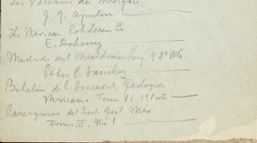 J. G. Aguilera
The Mexican Petroleum Co
E. Doheny
Medición del Meridiano
Pedro C. Sanchez
Boletin de la Sociedad Geologica
Mexicana Tomo VI 1ª Parte
Parergones del Inst. Geol. Mex.
Tomo III, No 1